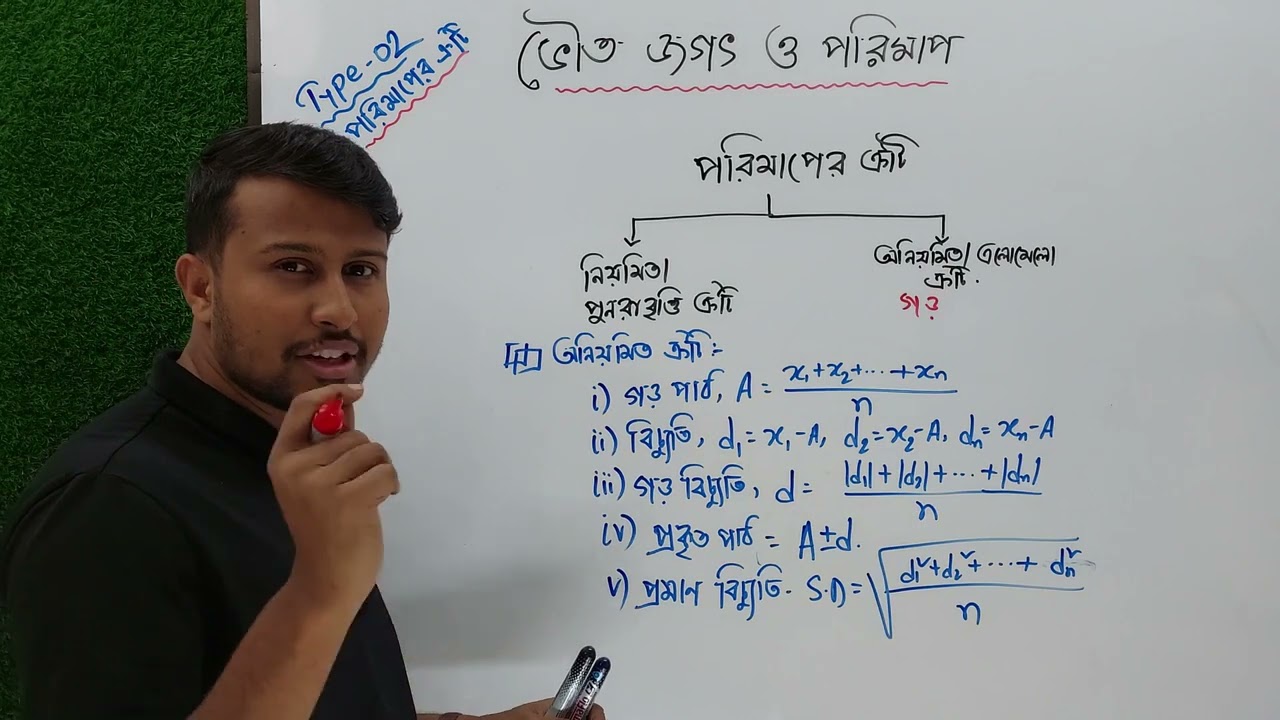 Type-02
পরিমাপের ত্রুটি
ভৌত জগৎ ও পরিমাপ
পরিমাপের ত্রুটি
নিয়মিত/
পুনরাবৃত্তি ত্রুটি
অনিয়মিত/এলোমেলো
ত্রুটি.
গড়
অনিয়মিত ত্রুটি:-
i) গড় পাঠ, A = x₁+x₂+...+xₙ / n
ii) বিচ্যুতি, d₁=x₁-A, d₂=x₂-A, dₙ=xₙ-A
iii) গড় বিচ্যুতি, d = |d₁|+|d₂|+...+|dₙ| / n
iv) প্রকৃত পাঠ = A±d.
v) প্রমান বিচ্যুতি. S.D = √(d₁²+d₂²+...+dₙ² / n)